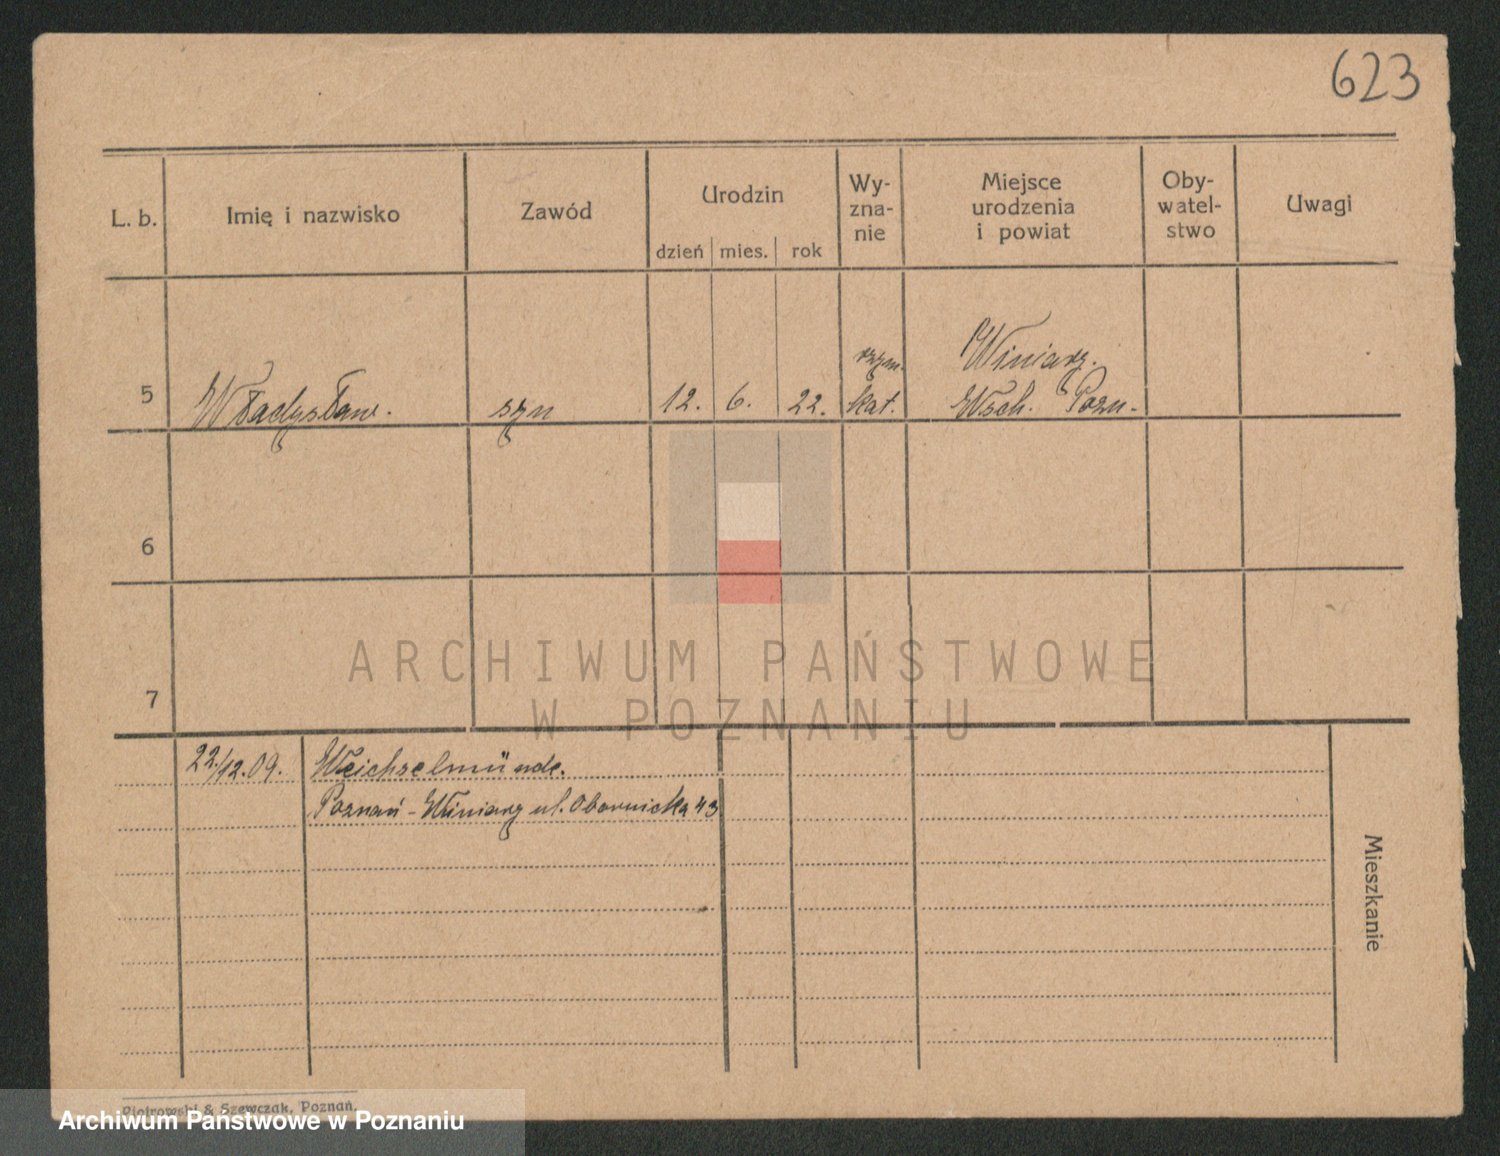 623
L. b.
Imię i nazwisko
Zawód
Urodzin
dzień mies. rok
Wy-
zna-
nie
Miejsce
urodzenia
i powiat
Oby-
watel-
stwo
Uwagi
5 Władysław. syn 12. 6. 22. rzym. kat. Winiary. Wsch. Pozn.
6
7
ARCHIWUM PAŃSTWOWE
W POZNANIU
22./12.09. Weichselmünde.
Poznań - Winiary ul. Obornicka 43
Mieszkanie
Piotrowski & Szewczak, Poznań.
Archiwum Państwowe w Poznaniu